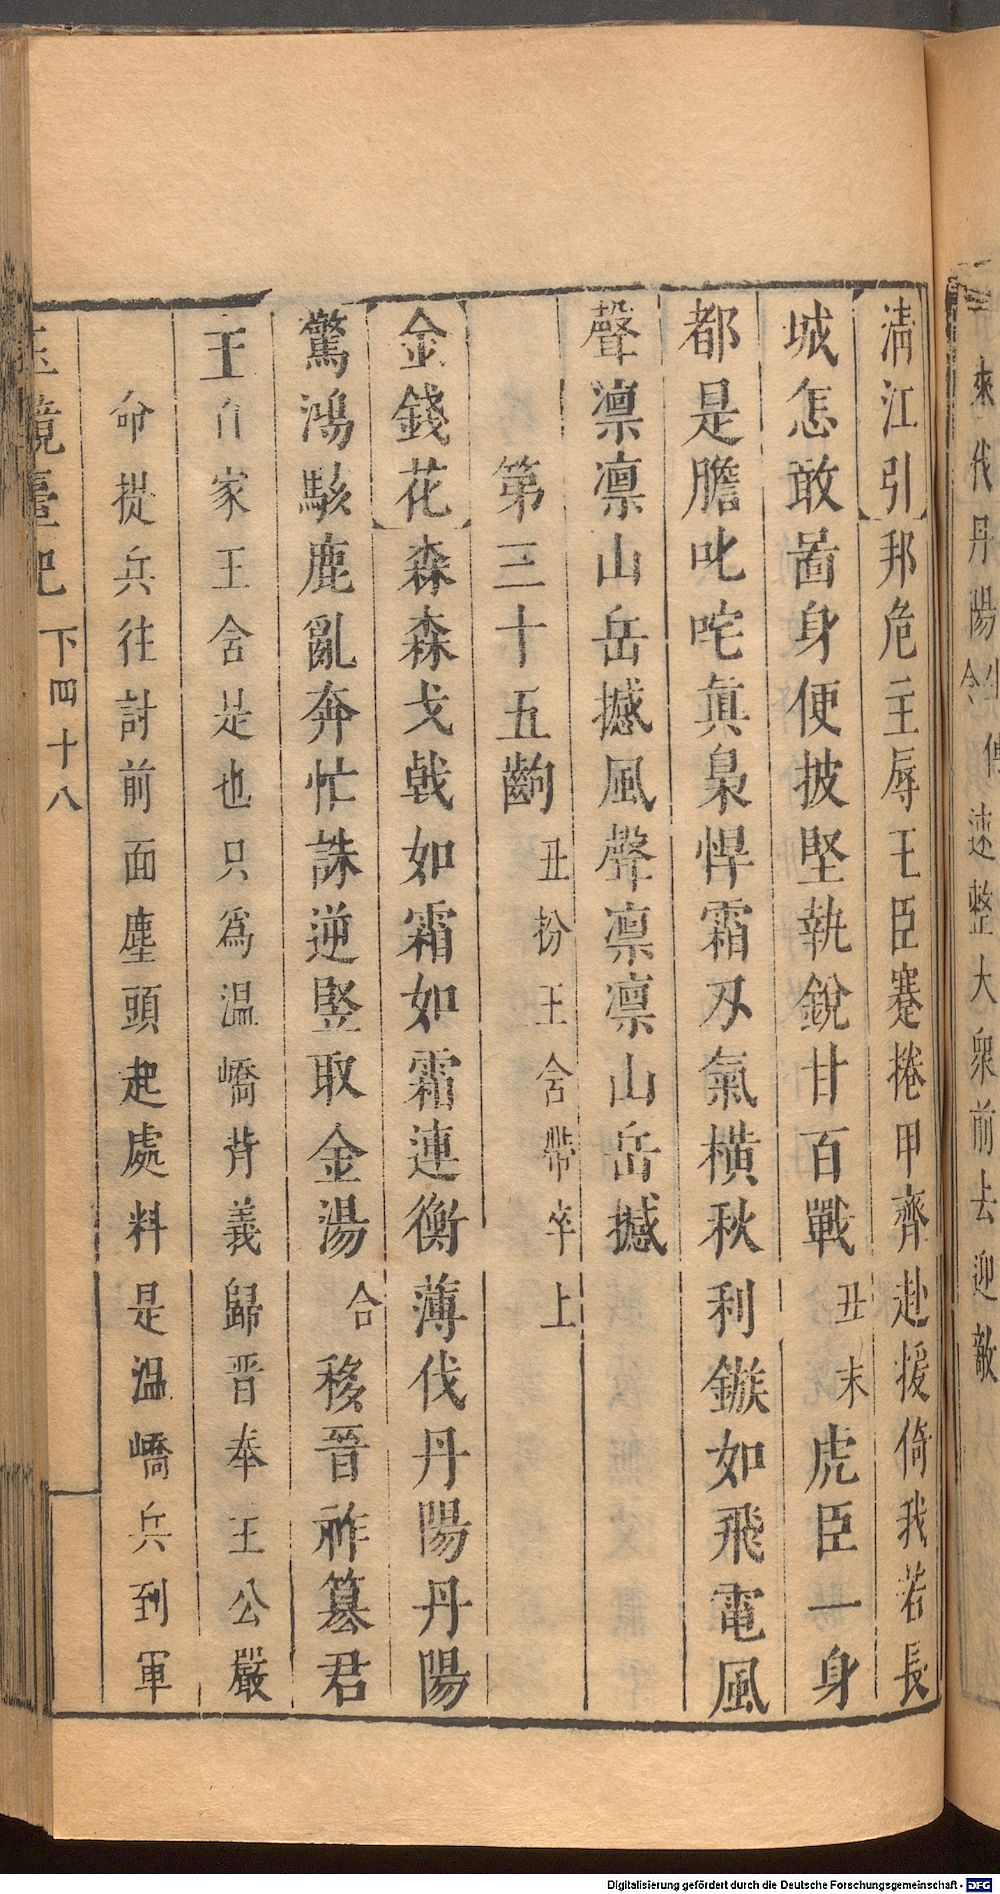 來伐丹陽 速整大衆前去迎敵
清江引 邦危主辱王臣蹇捲甲齊赴援倚我若長
城怎敢啚身便披堅執銳甘百戰 丑末 虎臣一身
都是膽叱咤眞梟悍霜刃氣橫秋利鏃如飛電風
聲凛凛山岳撼風聲凛凛山岳撼
第三十五齣 丑扮王含帶卒上
金錢花 森森戈戟如霜如霜連衡薄伐丹陽丹陽
驚鴻駭鹿亂奔忙誅逆豎取金湯 合 移晉祚篡君
王 自家王含是也只爲温嶠背義歸晋奉王公嚴
命提兵往討前面塵頭起處料是温嶠兵到軍
玉鏡臺記 下四十八
Digitalisierung gefördert durch die Deutsche Forschungsgemeinschaft - DFG